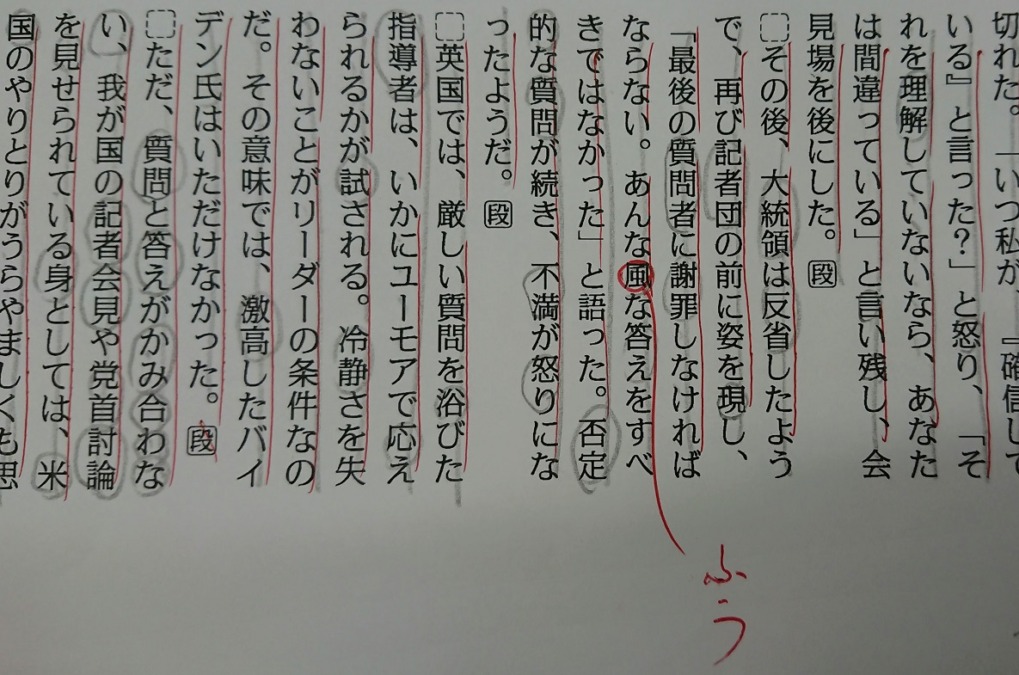 切れた。「いつ私が、『確信して
いる』と言った?」と怒り、「そ
れを理解していないなら、あなた
は間違っている」と言い残し、会
見場を後にした。段
その後、大統領は反省したよう
で、再び記者団の前に姿を現し、
「最後の質問者に謝罪しなければ
ならない。あんな風な答えをすべ
きではなかった」と語った。否定
的な質問が続き、不満が怒りにな
ったようだ。段
英国では、厳しい質問を浴びた
指導者は、いかにユーモアで応え
られるかが試される。冷静さを失
わないことがリーダーの条件なの
だ。その意味では、激高したバイ
デン氏はいただけなかった。段
ただ、質問と答えがかみ合わな
い、我が国の記者会見や党首討論
を見せられている身としては、米
国のやりとりがうらやましくも思
ふう